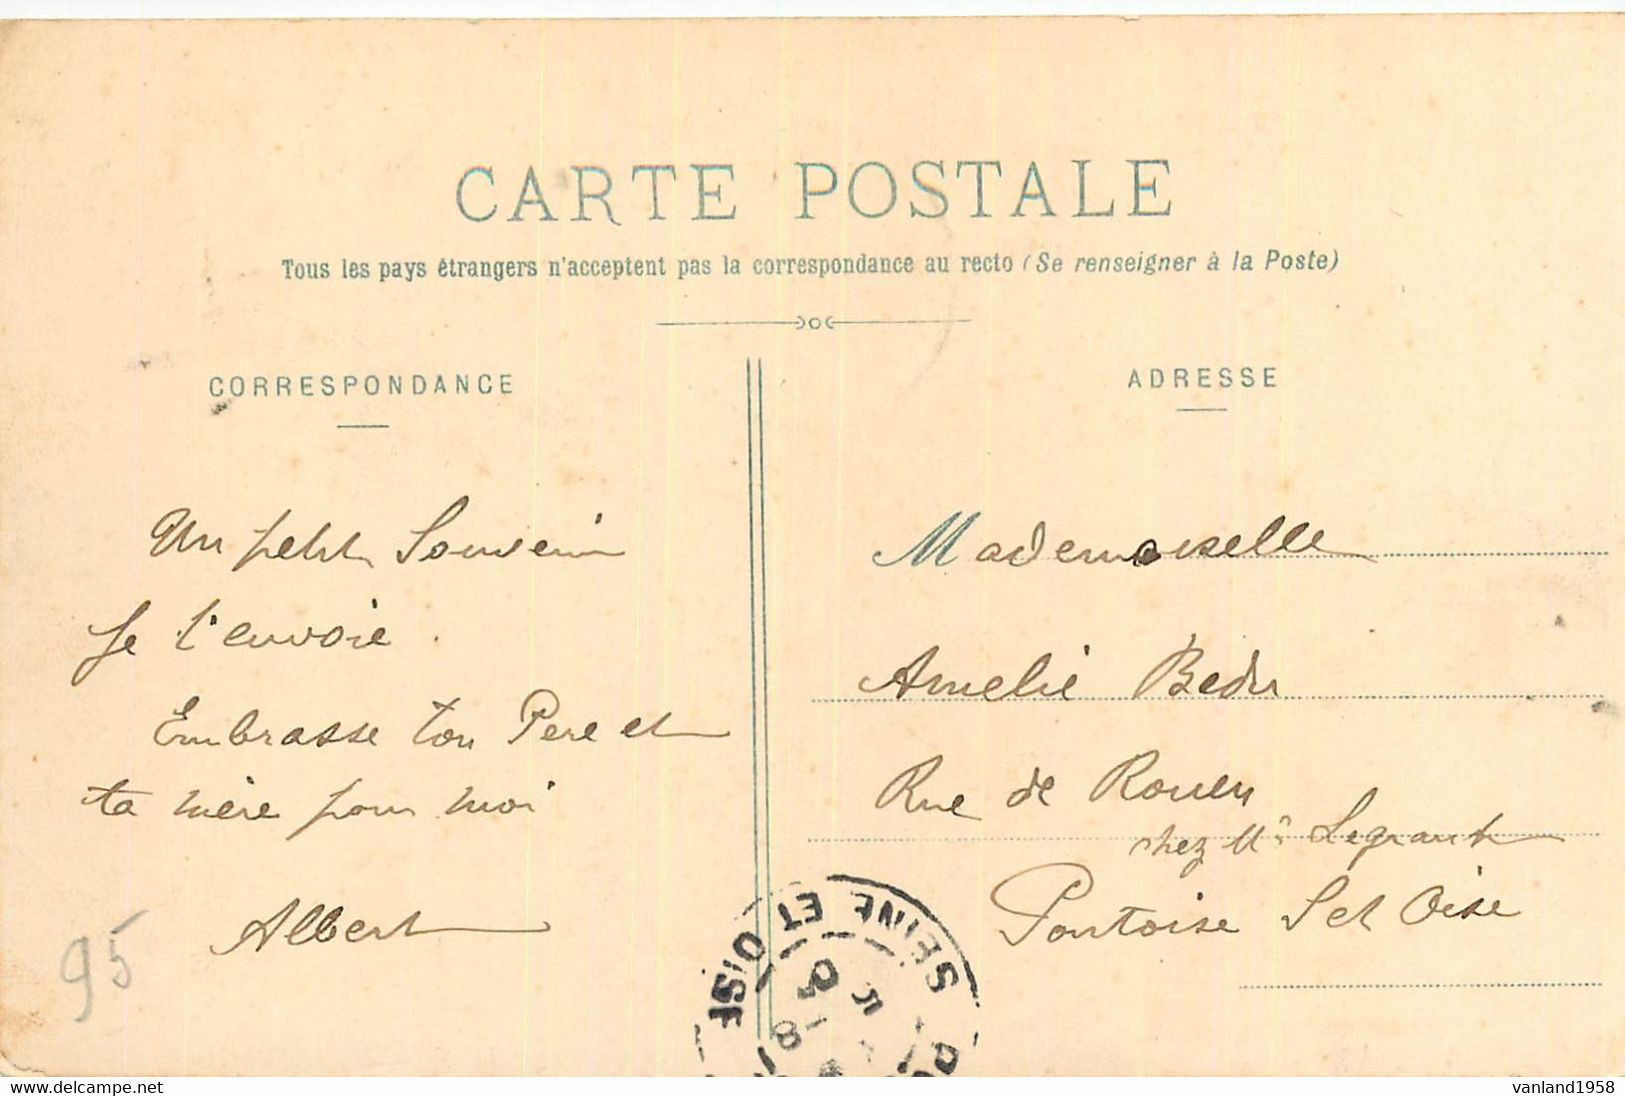 CARTE POSTALE
Tous les pays étrangers n'acceptent pas la correspondance au recto (Se renseigner à la Poste)
CORRESPONDANCE
Un petit Souvenir
Je t'envoie.
Embrasse ton Pere et
ta mère pour moi
Albert
95
ADRESSE
Mademoiselle
Amelie Bedu
Rue de Rouen
chez Mr Legrant
Pontoise S et Oise
SEINE ET OISE
vanland1958